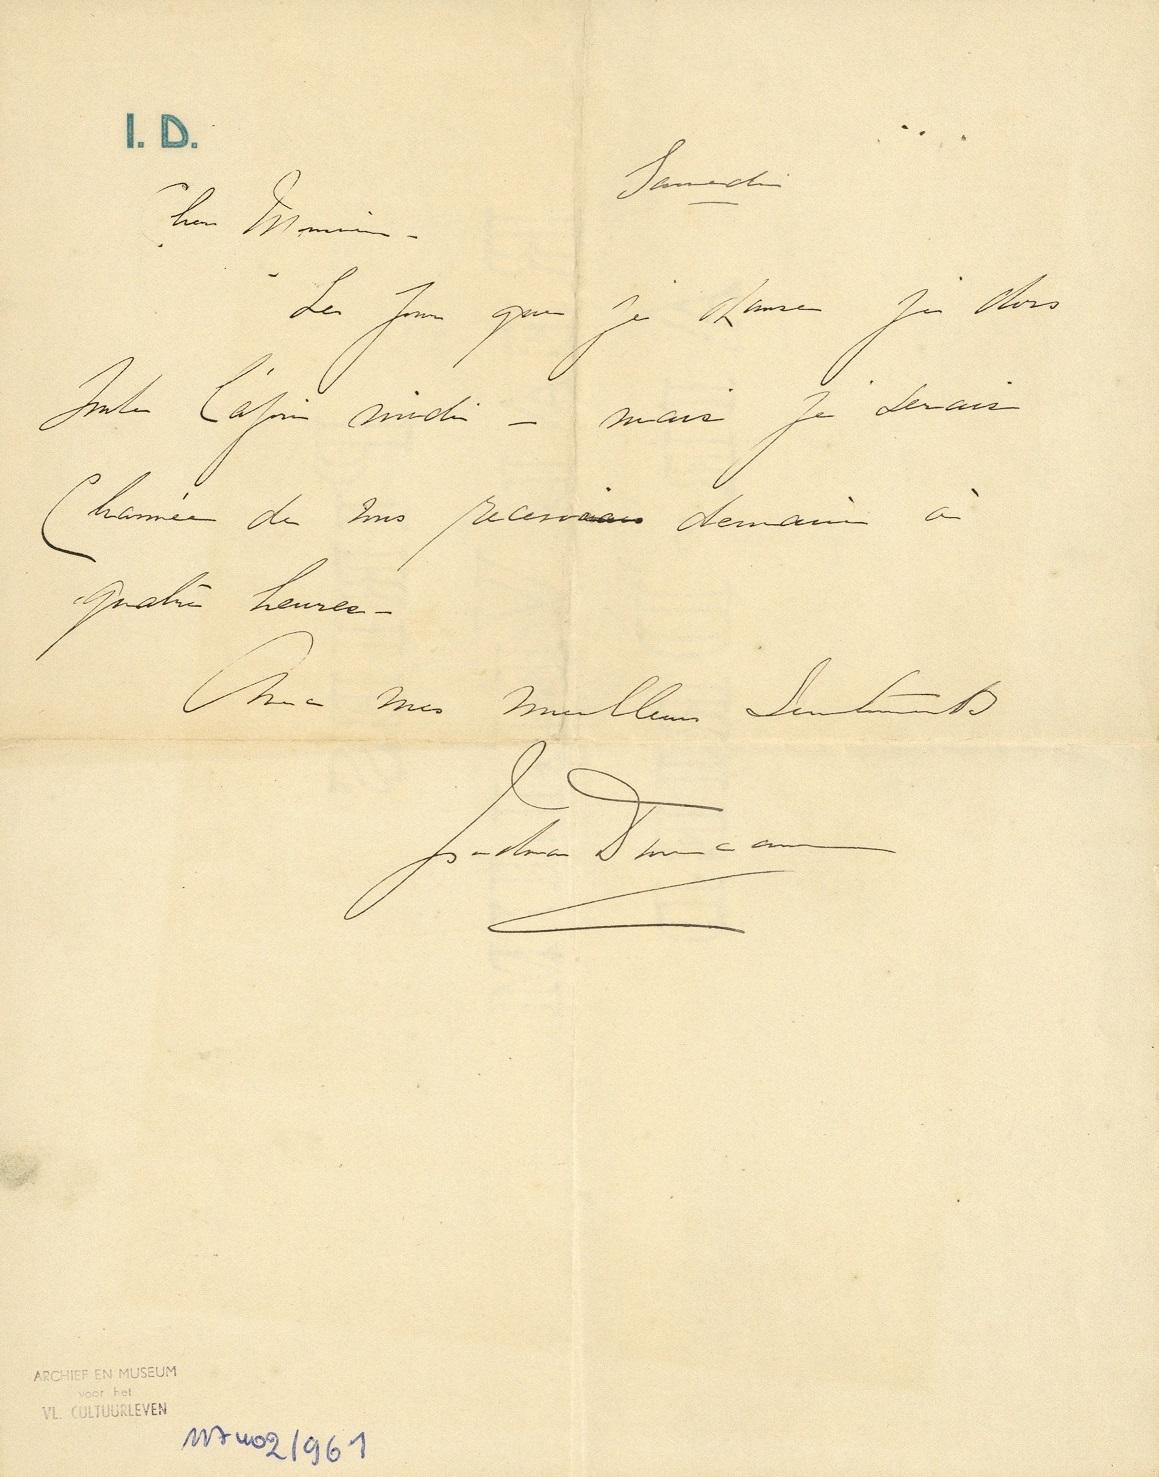 I. D.
Samedi
Cher Monsieur -
Les Jour que je danse je dors
toute l'après midi - mais je serais
Charmée de vous recevoir demain à
quatre heures -
Avec mes meilleurs Sentiments
Isadora Duncan
ARCHIEF EN MUSEUM
voor het
VL. CULTUURLEVEN
2/961